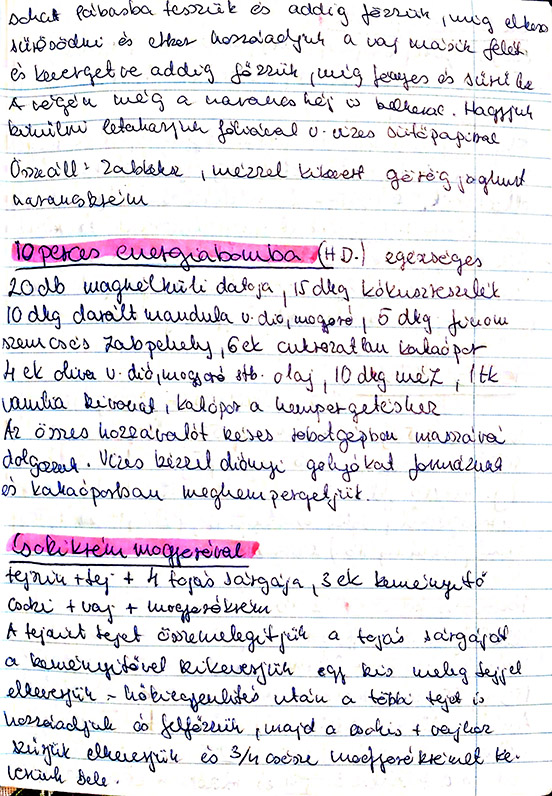 lábasba tesszük és addig főzzük, míg elkezd
sűrűsödni és ekkor hozzáadjuk a vaj másik felét
és kevergetve addig főzzük, míg fényes és sűrű lesz
A végén még a narancshéj is belkerül. Hagyjuk
kihűlni letakarjuk fóliával v. vizes sütőpapírral
Összeáll: zabkeksz, mézzel kikevert görög joghurt
narancskrém
10 perces energiabomba (H.D.) egészséges
20 db magnélküli datolya, 15 dkg kókuszreszelék
10 dkg darált mandula v. dió, mogyoró, 5 dkg finom
szemcsés zabpehely, 6 ek cukrozatlan kakaópor
4 ek oliva v. dió, mogyoró stb. olaj, 10 dkg méz, 1 tk
vanília kivonat, kakópor a hempergetéshez
Az összes hozzávalót késes robotgépban masszává
dolgozzuk. Vizes kézzel diónyi golyókat formázunk
és kakaóporban meghempergetjük.
Csokikrém mogyoróval
tejszín + tej + 4 tojás sárgája, 3 ek keményítő
csoki + vaj + mogyorókrém
A tejszínt tejet összemelegítjük a tojás sárgáját
a keményítővel kikeverjük egy kis meleg tejjel
elkeverjük - hőkiegyenlítés után a többi tejet is
hozzáadjuk és felfőzzük, majd a csokis + vajhoz
szűrjük elkeverjük és 3/4 csésze mogyorókrémet ke-
verünk bele.